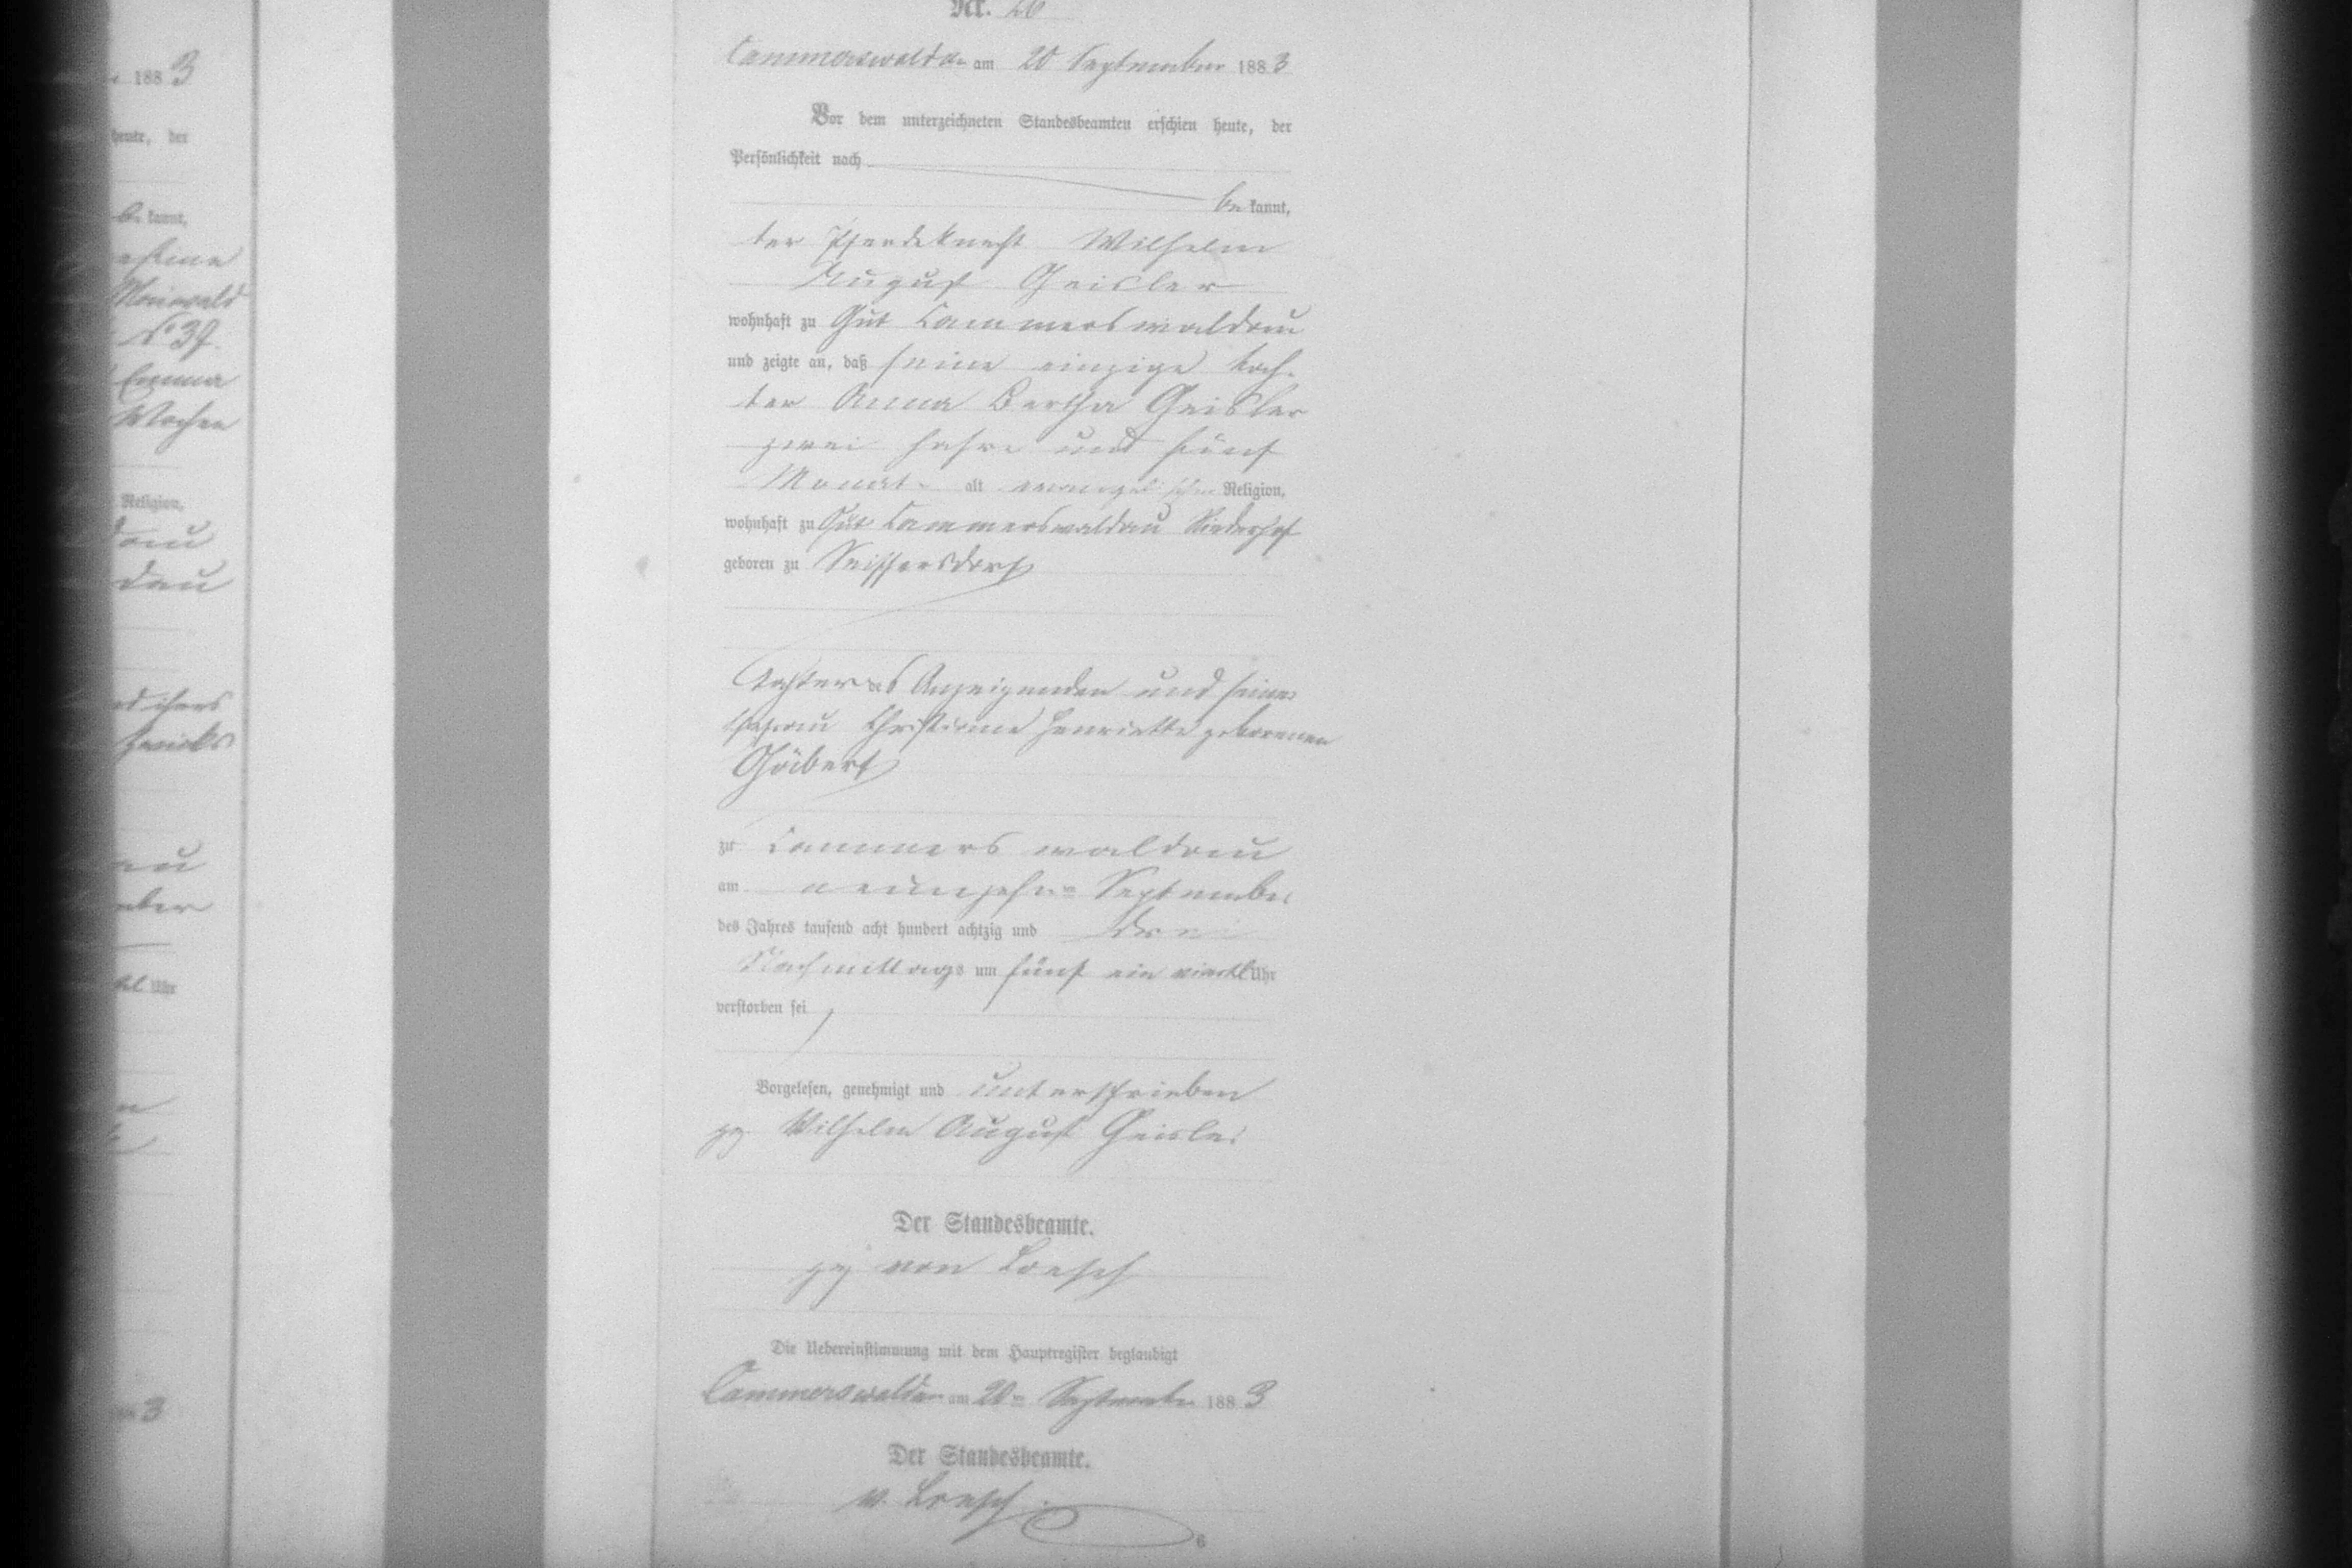 188 3
heute, der
be kannt,
Maiwald
No 39.
Emma
Wochen
Religion,
dau
dau
nd ihres
au
mber
Uhr
3
Nr. 26
Cammerswaldau am 20 September 188 3
Vor dem unterzeichneten Standesbeamten erschien heute, der
Persönlichkeit nach
be kannt,
der Pferdeknecht Wilhelm
August Geisler
wohnhaft zu Gut Cammerswaldau
und zeigte an, daß seine einzige Toch-
ter Anna Bertha Geisler
zwei Jahre und fünf
Monate alt evangelischer Religion,
wohnhaft zu Gut Cammerswaldau Niederhof
geboren zu Seiffersdorf
Tochter des Anzeigenden und seiner
Ehefrau Christiane Henriette geborenen
zu Cammerswaldau
am neunzehnten September
des Jahres tausend acht hundert achtzig und drei
Nachmittags um fünf ein viertel Uhr
verstorben sei
Vorgelesen, genehmigt und unterschrieben
gez Wilhelm August Geisler
Der Standesbeamte.
gez von Loesch
Die Uebereinstimmung mit dem Hauptregister beglaubigt
Cammerswaldau am 20ten September 188 3
Der Standesbeamte.
v. Loesch
6